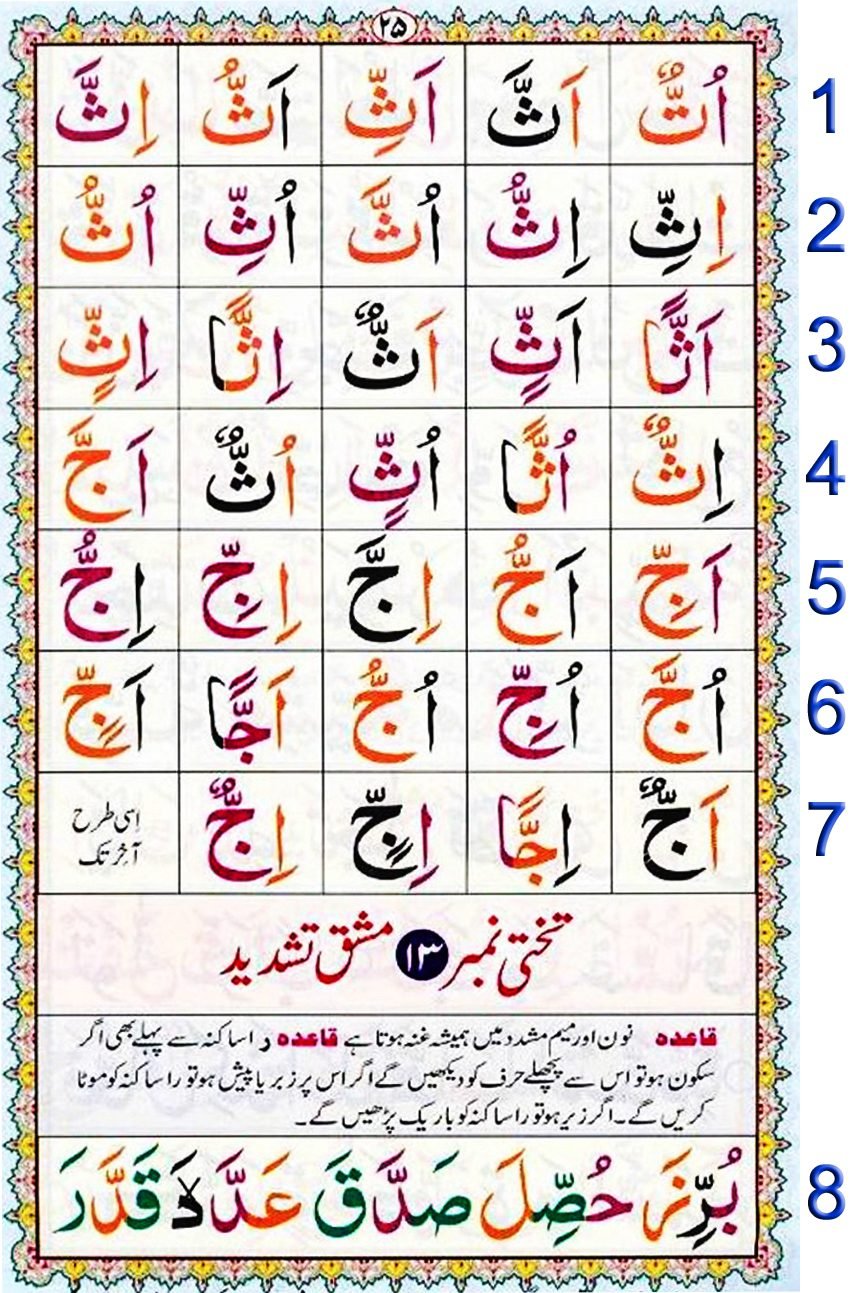 ۲۵
اُتٌّ اَثَّ اَثِّ اَثُّ اِثَّ 1
اِثِّ اِثُّ اُثَّ اُثِّ اُثُّ 2
اَثًّا اَثٍّ اَثٌّ اِثًّا اِثٍّ 3
اِثٌّ اُثًّا اُثٍّ اُثٌّ اَجَّ 4
اَجِّ اَجُّ اِجَّ اِجِّ اِجُّ 5
اُجَّ اُجِّ اُجُّ اَجًّا اَجٍّ 6
اَجٌّ اِجًّا اِجٍّ اِجٌّ اِسی طرح آخر تک 7
تختی نمبر ۱۳ مشق تشدید
قاعدہ نون اور میم مشدد میں ہمیشہ غنہ ہوتا ہے قاعدہ را ساکنہ سے پہلے بھی اگر
سکون ہو تو اس سے پچھلے حرف کو دیکھیں گے اگر اس پر زبر یا پیش ہو تو را ساکنہ کو موٹا
کریں گے۔ اگر زیر ہو تو را ساکنہ کو باریک پڑھیں گے۔
بُرِّزَ حُصِّلَ صَدَّقَ قَدَّرَ 8